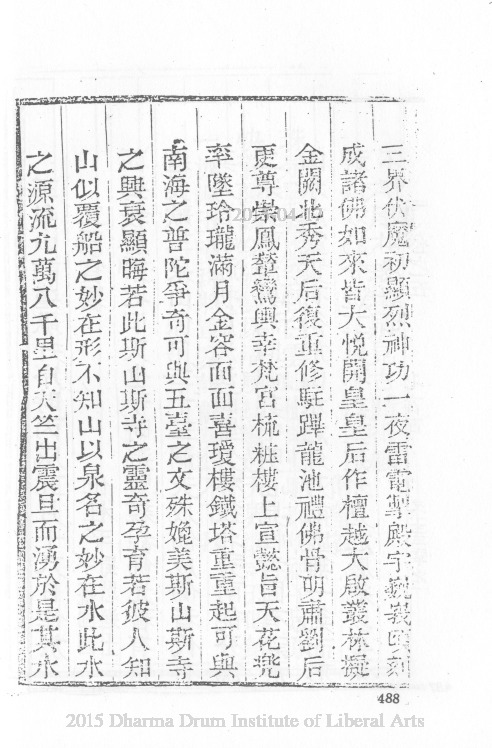 三界伏魔初顯烈神功一夜雷電聖殿宇巍峩頃刻
成諸佛如來皆大悅開皇皇后作檀越大啟叢林擬
金闕北秀天后復重修駐蹕龍池禮佛骨明肅劉后
更尊崇鳳輦鸞輿幸梵宮梳粧樓上宣懿旨天花兜
率墜玲瓏滿月金容面面喜瓊樓鐵塔重重起可與
南海之普陀爭奇可與五臺之文殊媲美斯山斯寺
之興衰顯晦若此斯山斯寺之靈奇孕育若彼人知
山似覆船之妙在形不知山以泉名之妙在水此水
之源流九萬八千里自天竺出震旦而湧於是其水
488
2015 Dharma Drum Institute of Liberal Arts